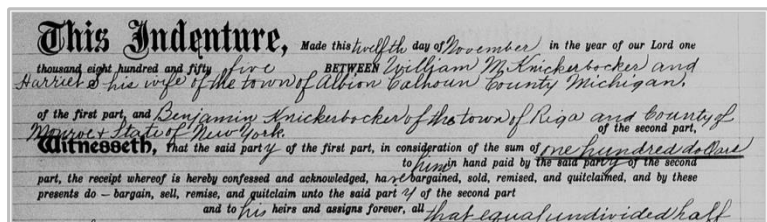 This Indenture, Made this twelfth day of November in the year of our Lord one
thousand eight hundred and fifty five BETWEEN William M Knickerbocker and
Harriet S his wife of the town of Albion Calhoun County Michigan,
of the first part, and Benjamin Knickerbocker of the town of Riga and County of
Monroe & State of New York. of the second part,
Witnesseth, That the said party of the first part, in consideration of the sum of one hundred dollars
to him in hand paid by the said party of the second
part, the receipt whereof is hereby confessed and acknowledged, have bargained, sold, remised, and quitclaimed, and by these
presents do – bargain, sell, remise, and quitclaim unto the said party of the second part
and to his heirs and assigns forever, all that equal undivided half